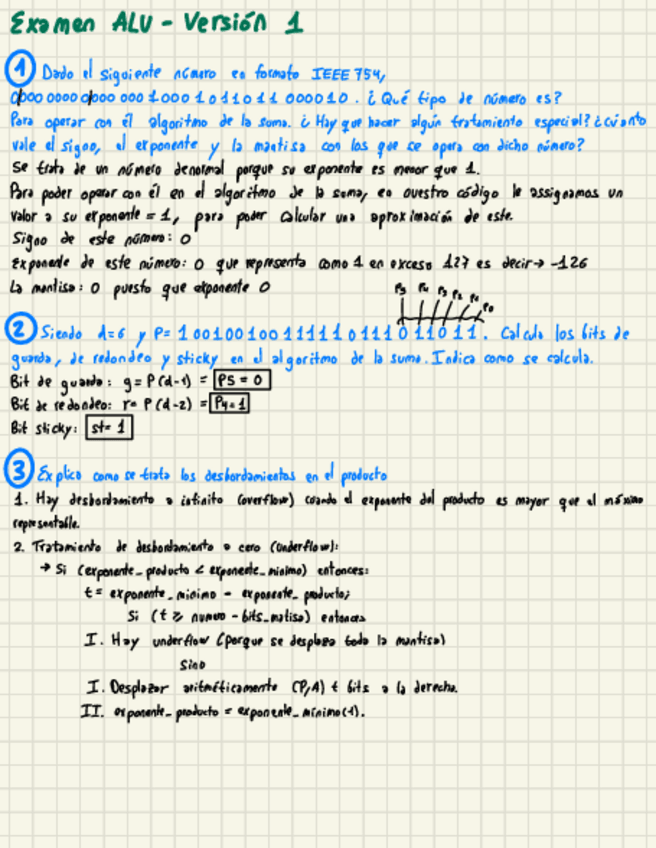 Examen ALU - Versión 1
1 Dado el siguiente número en formato IEEE 754,
0000 0000 0000 000 1000 1011011 000010. ¿Qué tipo de número es?
Para operar con él algoritmo de la suma. ¿Hay que hacer algún tratamiento especial? ¿cuánto
vale el signo, el exponente y la mantisa con los que se opera con dicho número?
Se trata de un número denormal porque su exponente es menor que 1.
Para poder operar con él en el algoritmo de la suma, en nuestro código le assignamos un
valor a su exponente = 1, para poder calcular una aproximación de este.
Signo de este número: 0
Exponente de este número: 0 que representa como 1 en exceso 127 es decir → -126
La mantisa: 0 puesto que exponente 0
P5 P4 P3 P2 P1 P0
2 Siendo d=6 y P= 100100100111110111011011. Calcula los bits de
guarda, de redondeo y sticky en el algoritmo de la suma. Indica como se calcula.
Bit de guarda: g= P(d-1) = P5 = 0
Bit de redondeo: r= P(d-2) = P4=1
Bit sticky: st= 1
3 Explica como se trata los desbordamientos en el producto
1. Hay desbordamiento a infinito (overflow) cuando el exponente del producto es mayor que el máximo
representable.
2. Tratamiento de desbordamiento a cero (underflow):
→ Si (exponente_producto < exponente_minimo) entonces:
t= exponente_minimo - exponente_producto;
Si (t ≥ numero-bits_matisa) entonces
I. Hay underflow (porque se desplaza toda la mantisa)
Sino
I. Desplazar aritméticamente (P,A) t bits a la derecha.
II. exponente_producto = exponente_minimo(1).